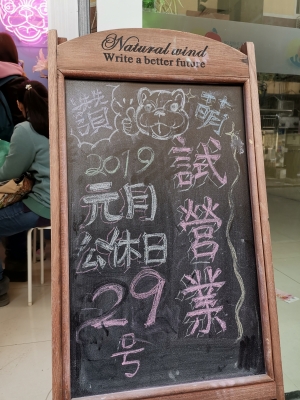 Natural wind
Write a better future
讚
萌
試營業
2019
元月
公休日
29
号